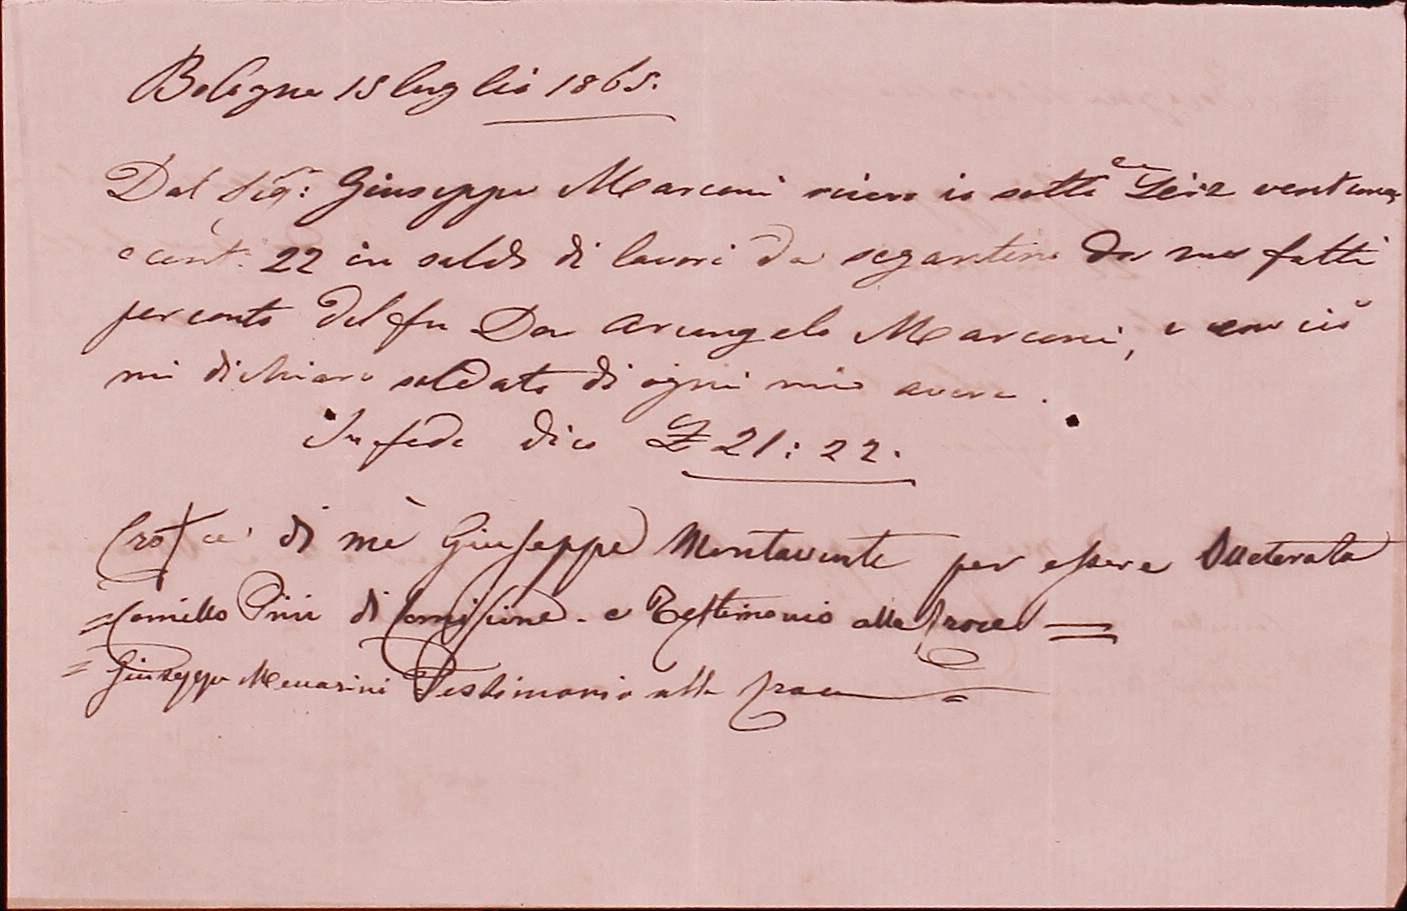 Bologna 15 luglio 1865.
Dal Sig.r: Giuseppe Marconi ricevo io sotto Lire ventuna,
e cent. 22 in saldo di lavori da segantino da me fatti
per conto del fu Don Arcangelo Marconi, e con ciò
mi dichiaro soldato di ogni mio avere.
In fede dico £ 21:22.
Cro+ce di mè Giuseppe Montavente per essere
=Camillo Pini di Comisione e Testimonio alla Croce=
=Giuseppe Testimonio alla Croce=